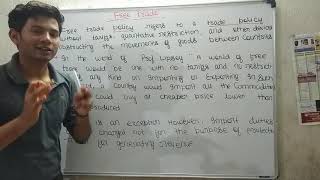 Free Trade
Free trade policy refers to a trade policy
without tariffs, quantitative restriction, and other devices
obstructing the movements of goods between countries
In the word of Prof Lipsey, A world of free
trade would be one with no tariffs and no restrict
any kind on importing or exporting. In such
a country would import all the commodities
could buy at cheaper price lower than
produced
is an exception However, import duties
charged not for the purpose of
for generating